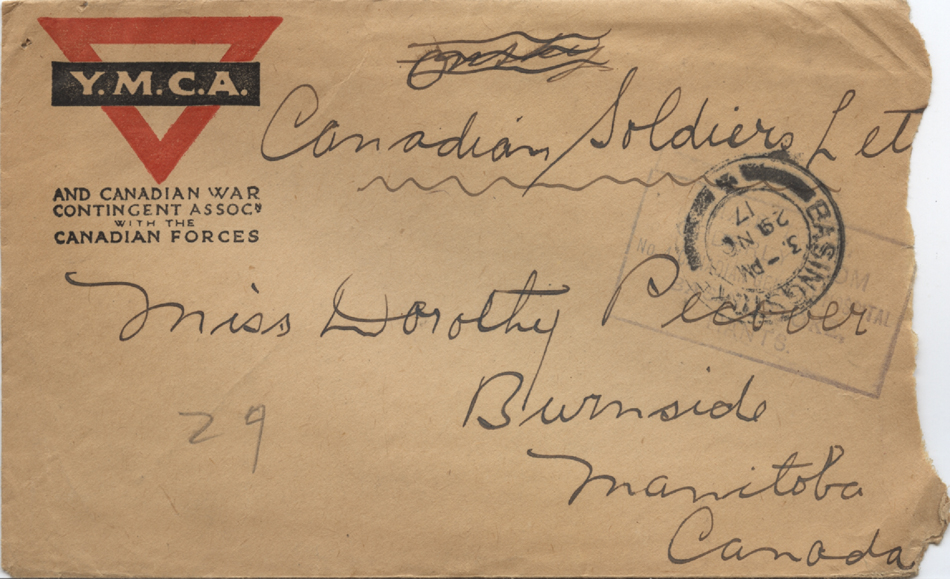 Y.M.C.A.
AND CANADIAN WAR
CONTINGENT ASSOCN
WITH THE
CANADIAN FORCES
Canadian Soldiers Let
BASINGSTOKE
3. - PM
29 NO
17
NO.
HANTS.
Miss Dorothy Pecover
Burnside
Manitoba
Canada
29